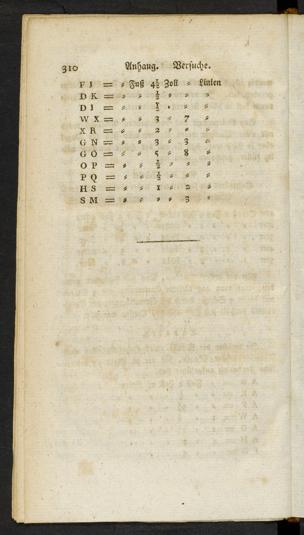 310 Anhang. Versuche.
F I = „ Fuß 4½ Zoll „ Linien
D K = „ „ ½ „ „ „
D I = „ „ ½ „ „ „
W X = „ „ 3 „ 7 „
X R = „ „ 2 „ „ „
G N = „ „ 3 „ 3 „
G O = „ „ 5 „ 8 „
O P = „ „ ½ „ „ „
P Q = „ „ ½ „ „ „
H S = „ „ 1 „ 2 „
S M = „ „ „ „ 3 „